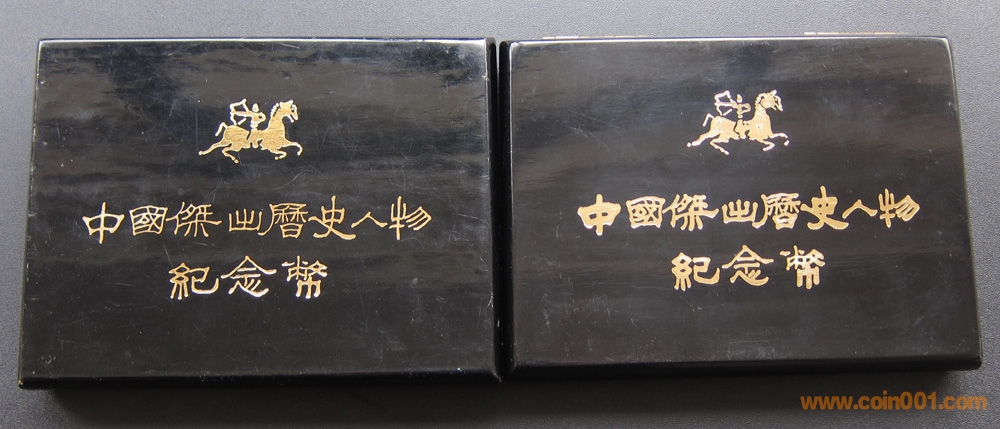 中國傑出曆史人物
紀念幣
中國傑出曆史人物
紀念幣
www.coin001.com